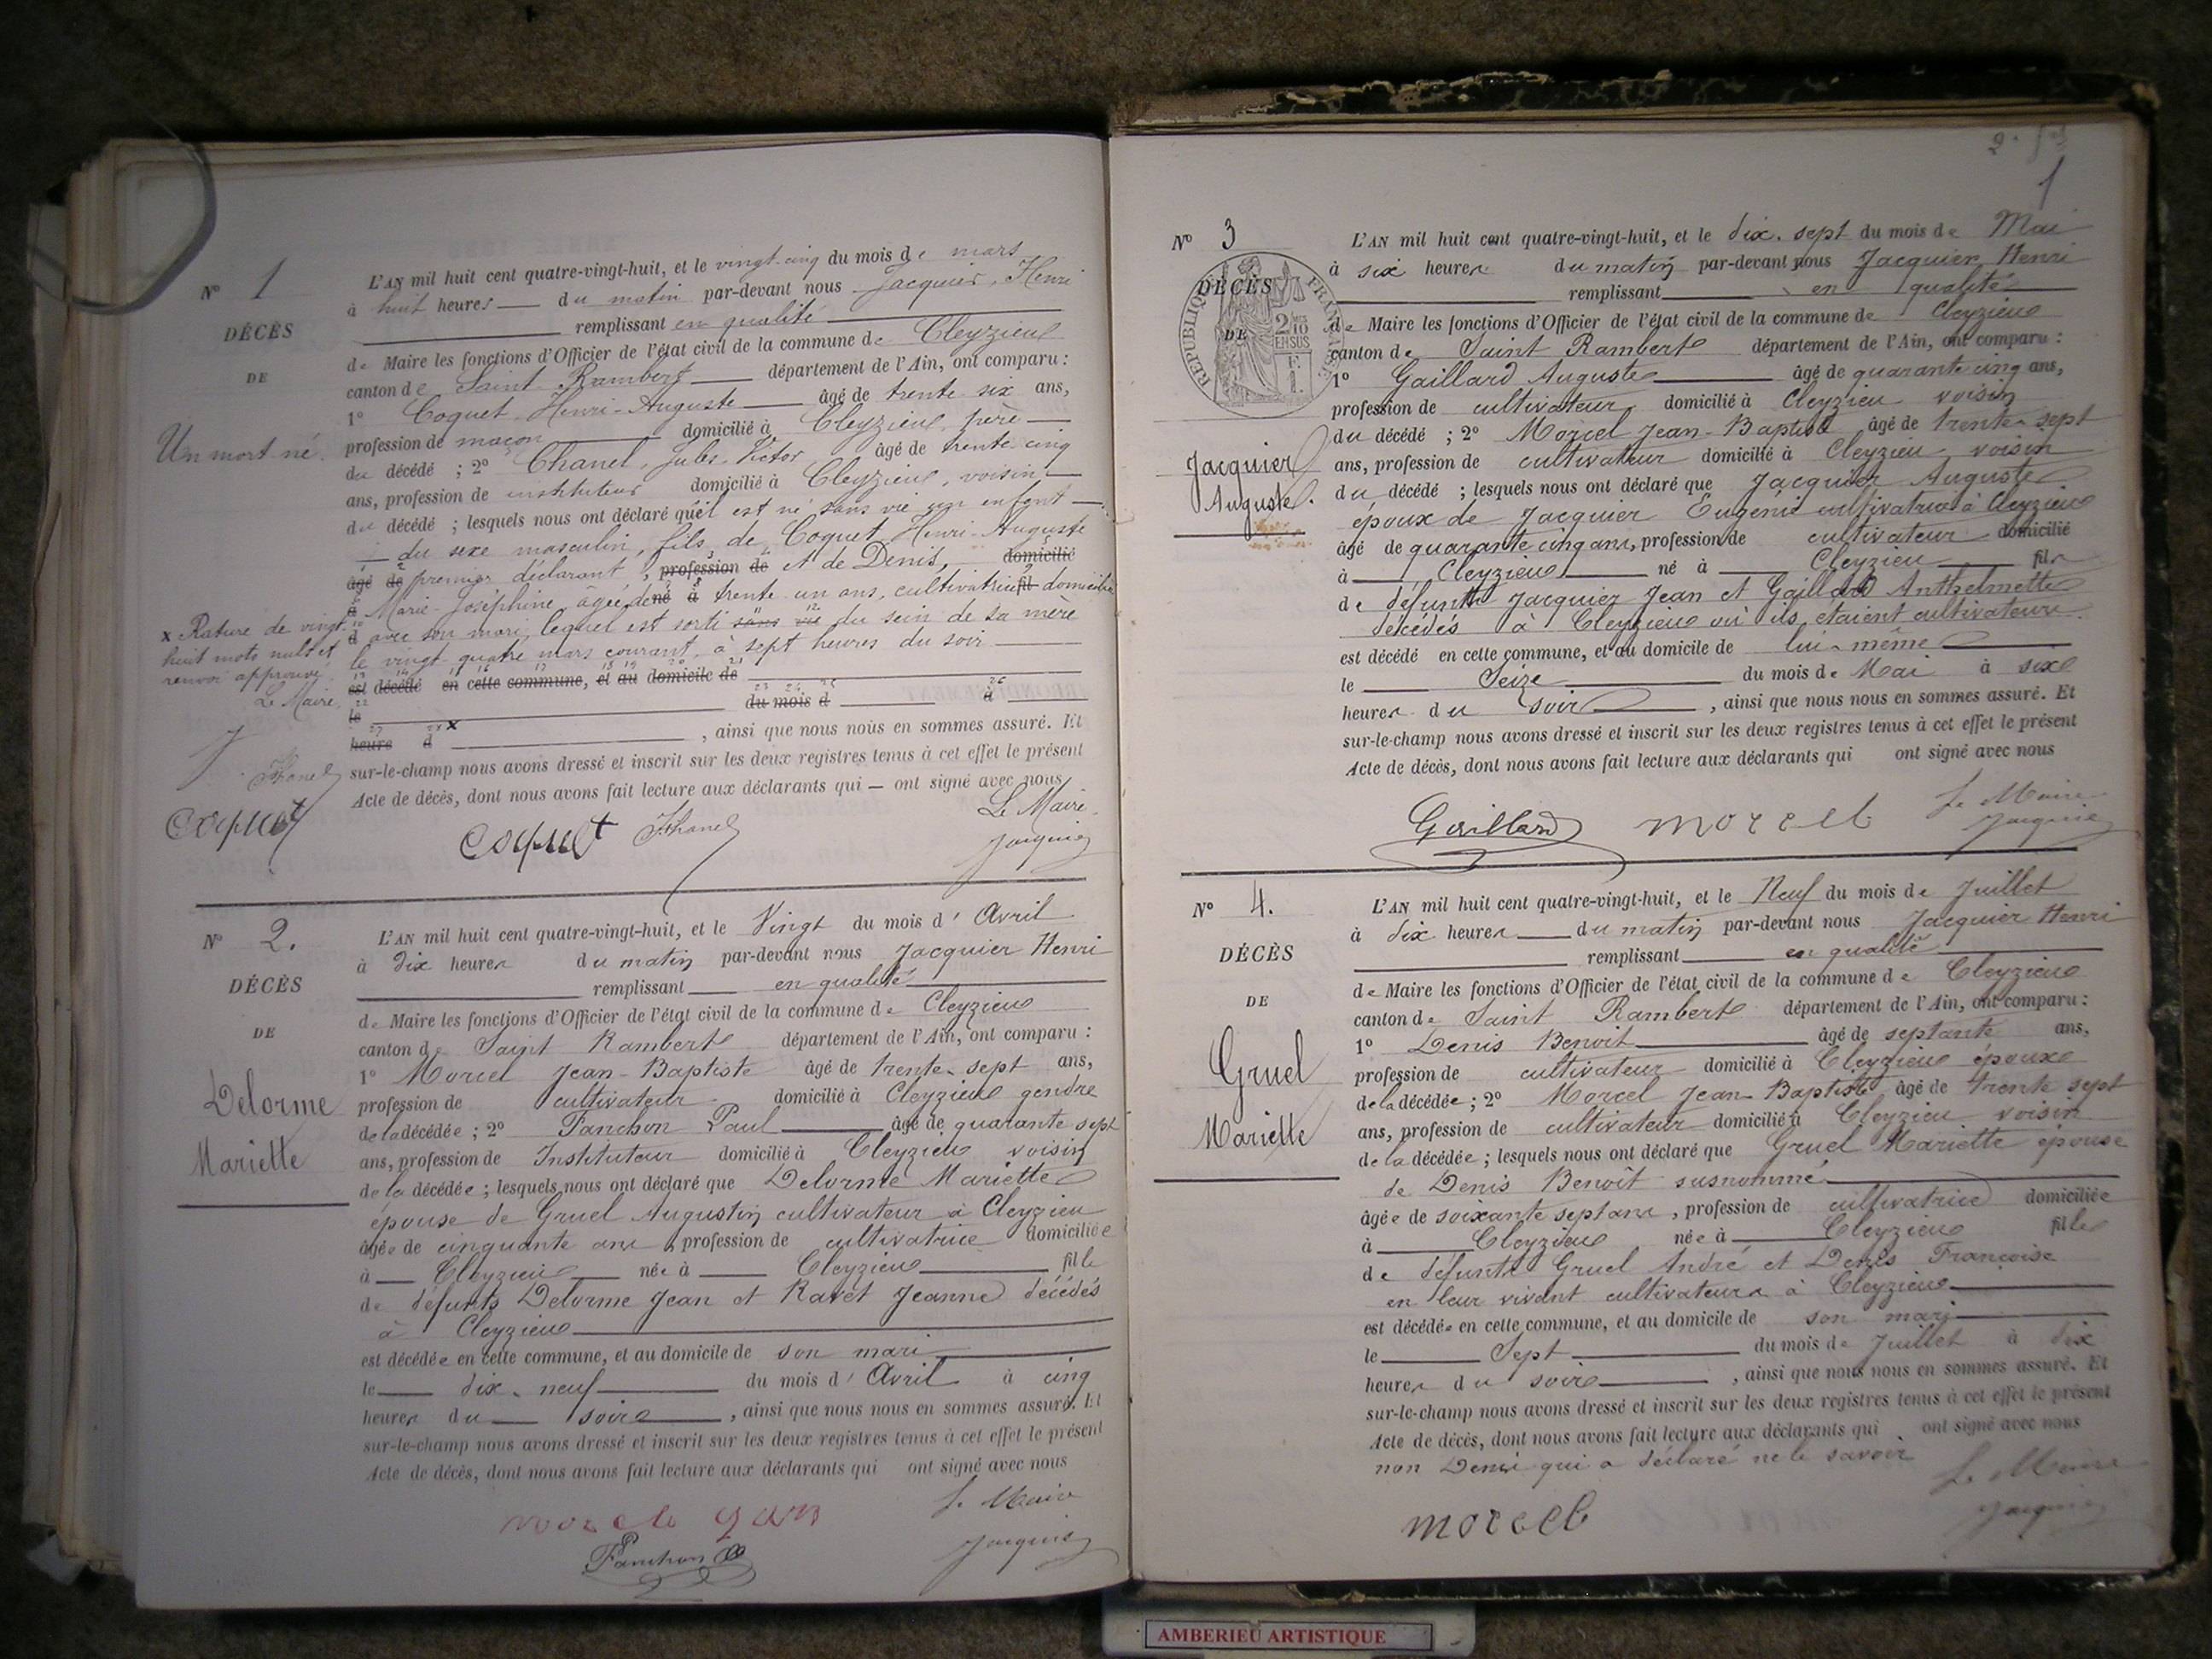 N° 1
DÉCÈS
DE
Un mort né.
L'AN mil huit cent quatre-vingt-huit, et le vingt-cinq du mois de mars
à huit heures du matin par-devant nous Jacquier, Henri
remplissant en qualité
de Maire les fonctions d'Officier de l'état civil de la commune de Cleyzieu
canton de Saint Rambert département de l'Ain, ont comparu :
1° Coquet Henri-Auguste âgé de trente six ans,
profession de maçon domicilié à Cleyzieu, père
du décédé ; 2° Chanel, Jules Victor âgé de trente cinq
ans, profession de instituteur domicilié à Cleyzieu, voisin
du décédé ; lesquels nous ont déclaré qu'il est né sans vie un enfant
du sexe masculin, fils de Coquet Henri-Auguste
âgé de premier déclarant, profession de et de Denis, domicilié
à Marie-Joséphine âgée de né à trente un ans, cultivatrice fil domiciliée
d avec son mari, lequel est sorti sans vie du sein de sa mère
le vingt quatre mars courant à sept heures du soir
est décédé en cette commune, et au domicile de
le du mois d à
heure d x , ainsi que nous nous en sommes assuré. Et
sur-le-champ nous avons dressé et inscrit sur les deux registres tenus à cet effet le présent
Acte de décès, dont nous avons fait lecture aux déclarants qui — ont signé avec nous
x Rature de vingt
huit mots nuls et
renvoi approuvé
Le Maire,
J Chanel
Coquet
Coquet JChanel Le Maire
Jacquier
N° 2.
DÉCÈS
DE
Delorme
Mariette
L'AN mil huit cent quatre-vingt-huit, et le Vingt du mois d'Avril
à dix heures du matin par-devant nous Jacquier Henri
remplissant en qualité
de Maire les fonctions d'Officier de l'état civil de la commune de Cleyzieu
canton de Saint Rambert département de l'Ain, ont comparu :
1° Morcel Jean-Baptiste âgé de trente-sept ans,
profession de cultivateur domicilié à Cleyzieu gendre
de la décédée ; 2° Fanchon Paul âgé de quarante sept
ans, profession de Instituteur domicilié à Cleyzieu voisin
de la décédée ; lesquels nous ont déclaré que Delorme Mariette
épouse de Gruel Augustin cultivateur à Cleyzieu
âgée de cinquante ans, profession de cultivatrice domiciliée
à Cleyzieu née à Cleyzieu fille
de défunts Delorme Jean et Ravet Jeanne décédés
à Cleyzieu
est décédée en cette commune, et au domicile de son mari
le dix-neuf du mois d'Avril à cinq
heures du soir , ainsi que nous nous en sommes assuré. Et
sur-le-champ nous avons dressé et inscrit sur les deux registres tenus à cet effet le présent
Acte de décès, dont nous avons fait lecture aux déclarants qui ont signé avec nous
Le Maire
Fanchon
Jacquier
1
N° 3
DÉCÈS
DE
RÉPUBLIQUE FRANÇAISE
2/10 EN SUS
Jacquier
Auguste.
L'AN mil huit cent quatre-vingt-huit, et le dix-sept du mois de Mai
à six heures du matin par-devant nous Jacquier Henri
remplissant en qualité
de Maire les fonctions d'Officier de l'état civil de la commune de Cleyzieu
canton de Saint Rambert département de l'Ain, ont comparu :
1° Gaillard Auguste âgé de quarante cinq ans,
profession de cultivateur domicilié à Cleyzieu voisin
du décédé ; 2° Morcel Jean-Baptiste âgé de trente-sept
ans, profession de cultivateur domicilié à Cleyzieu voisin
du décédé ; lesquels nous ont déclaré que Jacquier Auguste
époux de Jacquier Eugénie cultivatrice à Cleyzieu
âgé de quarante cinq ans, profession de cultivateur domicilié
à Cleyzieu né à Cleyzieu fils
de défunts Jacquier Jean et Gaillard Anthelmette
décédés à Cleyzieu où ils étaient cultivateurs
est décédé en cette commune, et au domicile de lui-même
le Seize du mois de Mai à six
heures du soir , ainsi que nous nous en sommes assuré. Et
sur-le-champ nous avons dressé et inscrit sur les deux registres tenus à cet effet le présent
Acte de décès, dont nous avons fait lecture aux déclarants qui ont signé avec nous
Gaillard morcel Le Maire
Jacquier
N° 4.
DÉCÈS
DE
Gruel
Mariette
L'AN mil huit cent quatre-vingt-huit, et le Neuf du mois de Juillet
à dix heures du matin par-devant nous Jacquier Henri
remplissant en qualité
de Maire les fonctions d'Officier de l'état civil de la commune de Cleyzieu
canton de Saint Rambert département de l'Ain, ont comparu :
1° Denis Benoit âgé de septante ans,
profession de cultivateur domicilié à Cleyzieu époux
de la décédée ; 2° Morcel Jean-Baptiste âgé de trente sept
ans, profession de cultivateur domicilié à Cleyzieu voisin
de la décédée ; lesquels nous ont déclaré que Gruel Mariette épouse
de Denis Benoît susnommé
âgée de soixante sept ans, profession de cultivatrice domiciliée
à Cleyzieu née à Cleyzieu fille
de défunts Gruel André et Denis Françoise
en leur vivant cultivateurs à Cleyzieu
est décédée en cette commune, et au domicile de son mari
le Sept du mois de Juillet à dix
heures du soir , ainsi que nous nous en sommes assuré. Et
sur-le-champ nous avons dressé et inscrit sur les deux registres tenus à cet effet le présent
Acte de décès, dont nous avons fait lecture aux déclarants qui ont signé avec nous
non Denis qui a déclaré ne le savoir
Le Maire
morcel Jacquier
AMBERIEU ARTISTIQUE